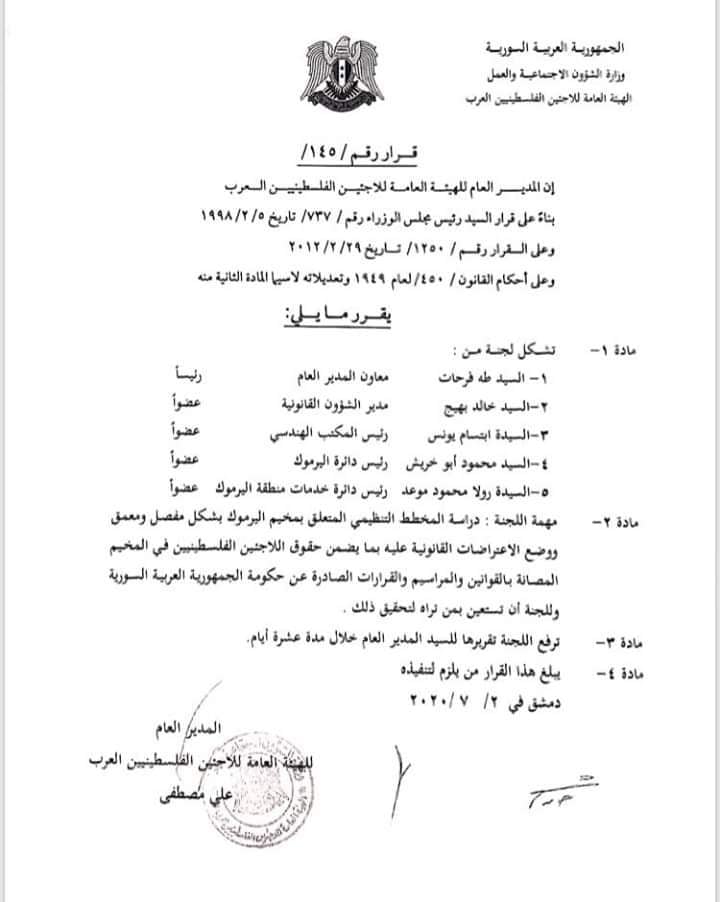 الجمهورية العربية السورية
وزارة الشؤون الاجتماعية والعمل
الهيئة العامة للاجئين الفلسطينيين العرب
قـرار رقـم / ١٤٥/
إن المديـر العام للهيئـة العامـة للاجئيـن الفلسطينييـن العـرب
بناءً على قرار السيد رئيس مجلس الوزراء رقم / ٧٣٧/ تاريخ ١٩٩٨/٢/٥
وعلى القـرار رقـم / ١٢٥٠/ تـاريخ ٢٠١٢/٢/٢٩
وعلى أحكام القانون / ٤٥٠/ لعام ١٩٤٩ وتعديلاته لاسيما المادة الثانية منه
يقـرر مـا يـلي:
مادة ١- تشـكل لجنـة مـن :
١- السيد طه فرحات معاون المدير العام رئيسـاً
٢-السيد خالد بهيج مدير الشؤون القانونية عضـواً
٣-السيدة ابتسام يونس رئيس المكتب الهندسي عضـواً
٤-السيد محمود أبو خريش رئيس دائرة اليرموك عضـواً
٥-السيدة رولا محمود موعد رئيس دائرة خدمات منطقة اليرموك عضـواً
مادة ٢- مهمة اللجنة : دراسة المخطط التنظيمي المتعلق بمخيم اليرموك بشكل مفصل ومعمق
ووضع الاعتراضات القانونية عليه بما يضمن حقوق اللاجئين الفلسطينيين في المخيم
المصانة بالقوانين والمراسيم والقرارات الصادرة عن حكومة الجمهورية العربية السورية
وللجنة أن تستعين بمن تراه لتحقيق ذلك .
مادة ٣- ترفع اللجنة تقريرها للسيد المدير العام خلال مدة عشرة أيام.
مادة ٤- يبلغ هذا القرار من يلزم لتنفيذه
دمشق في ٢ / ٧ /٢٠٢٠
المدير العام
للهيئة العامة للاجئين الفلسطينيين العرب
علي مصطفى